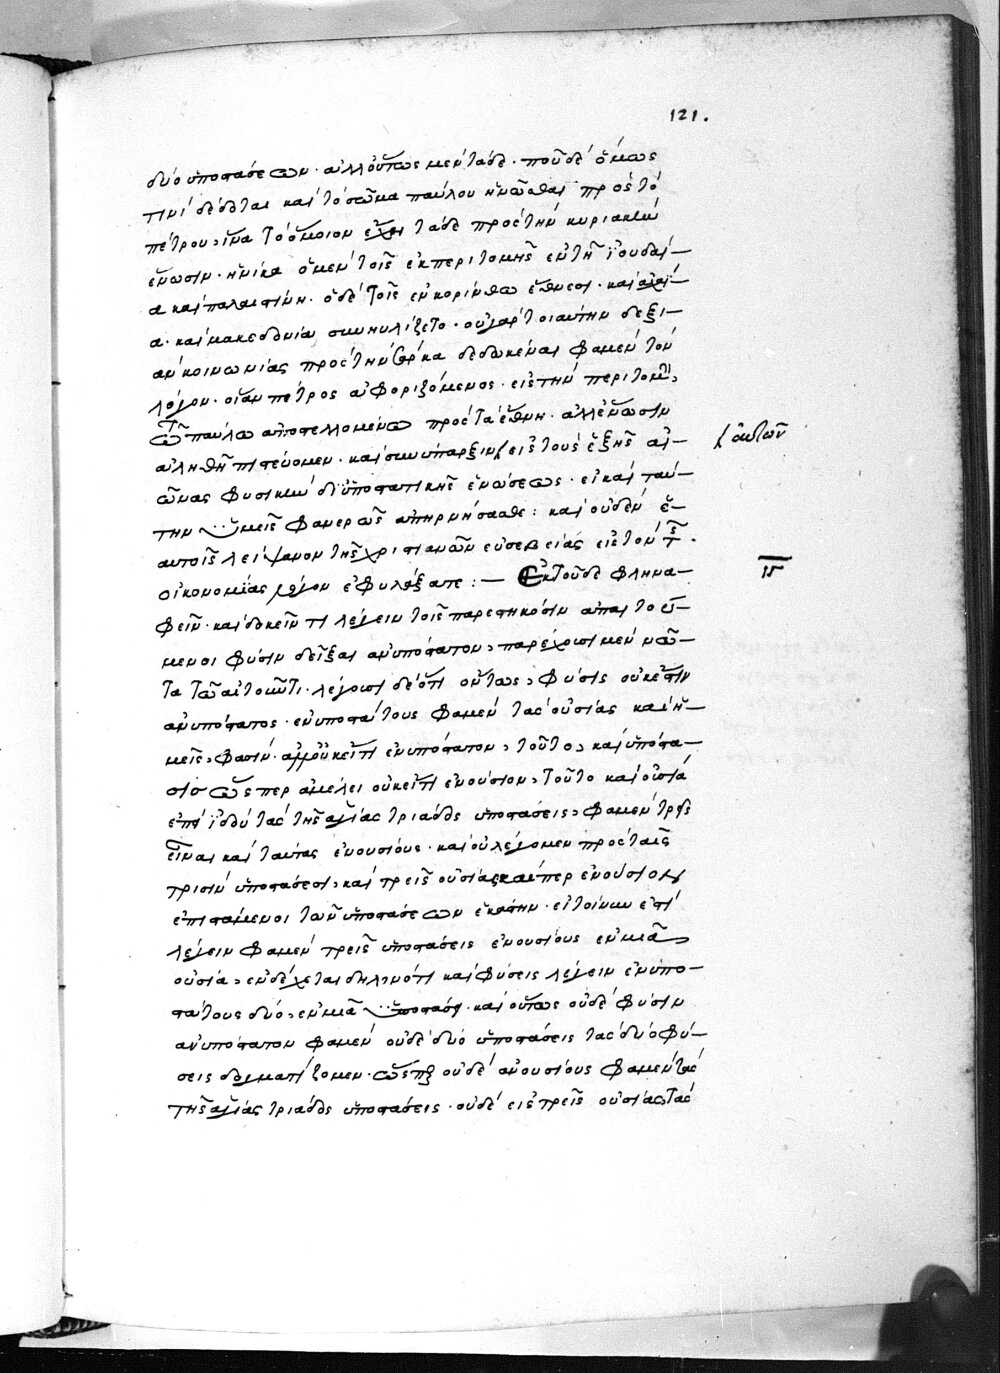 121.
δύο ὑποστάσεων· ἀλλ' οὕτως μὲν τάδε· ποῦ δὲ ὅμως
τινὶ δέδοται καὶ τὸ σῶμα παύλου ἡνῶσθαι πρὸς τὸ
πέτρου, ἵνα τὸ ὅμοιον ἔχοι τάδε πρὸς τὴν κυριακὴν
ἕνωσιν· ἡνίκα ὁ μὲν τοῖς ἐκ περιτομῆς ἐν τῇ ἰουδαί–
α καὶ παλαιστίνῃ· ὁ δὲ τοῖς ἐν κορίνθῳ ἔθνεσι· καὶ ἀχαΐ–
α· καὶ μακεδονίᾳ συνηυλίζετο· οὐ γὰρ τοιαύτην δεξι–
ὰν κοινωνίας πρὸς τὴν σάρκα δεδωκέναι φαμὲν τὸν
λόγον· οἵαν πέτρος ἀφοριζόμενος· εἰς τὴν περιτομὴν,
τῷ παύλῳ ἀποστελλομένῳ πρὸς τὰ ἔθνη· ἀλλ' ἕνωσιν
ἀληθῆ πιστεύομεν· καὶ συνύπαρξιν εἰς τοὺς ἑξῆς αἰ–
αὐτῶν
ῶνας φυσικὴν δι' ὑποστατικῆς ἑνώσεως· εἰ καὶ ταύ–
την ὑμεῖς φανερῶς ἀπηρνήσασθε: καὶ οὐδὲν ἑ–
αυτοῖς λείψανον τῆς χριστιανῶν εὐσεβείας εἰς τὸν τῆς
οἰκονομίας λόγον ἐφυλάξατε :— Ἐκ τοῦδε φλήνα–
φεῖν· καὶ δοκεῖν τι λέγειν τοῖς παρεστηκόσιν ἀπαιτού–
μενοι φύσιν δεῖξαι ἀνυπόστατον, παρέχουσι μὲν
τῷ αἰτοῦντι· λέγουσι δὲ ὅτι οὕτως, φύσις οὐκ ἔστιν
ἀνυπόστατος· ἐνυποστάτους φαμὲν τὰς οὐσίας καὶ ἡ–
μεῖς, φασίν· ἀλλ' οὐκ εἴ τι ἐνυπόστατον, τοῦτο, καὶ ὑπόστα–
σις ὥσπερ ἀμέλει οὐκ εἴ τι ἐνούσιον, τοῦτο καὶ οὐσία
ἐπεὶ ἰδοὺ τὰς τῆς ἁγίας τριάδος ὑποστάσεις, φαμὲν τρεῖς
εἶναι καὶ ταύτας ἐνουσίους· καὶ οὐ λέγομεν πρὸς ταῖς
τρισὶν ὑποστάσεσι, καὶ τρεῖς οὐσίας, καίπερ ἐνούσιον
ἐπιστάμενοι τῶν ὑποστάσεων ἑκάστην· εἰ τοίνυν ἐπὶ
λέγειν φαμὲν τρεῖς ὑποστάσεις ἐνουσίους ἐν μιᾷ
οὐσίᾳ, ἐνδέχεται δηλονότι καὶ φύσεις λέγειν ἐνυπο–
στάτους δύο, ἐν μιᾷ ὑποστάσει· καὶ οὕτως οὐδὲ φύσιν
ἀνυπόστατον φαμὲν οὐδὲ δύο ὑποστάσεις τὰς δύο φύ–
σεις δογματίζομεν· ὥσπερ οὐδὲ ἀνουσίους φαμὲν τὰς
τῆς ἁγίας τριάδος ὑποστάσεις· οὐδὲ εἰς τρεῖς οὐσίας τὰς